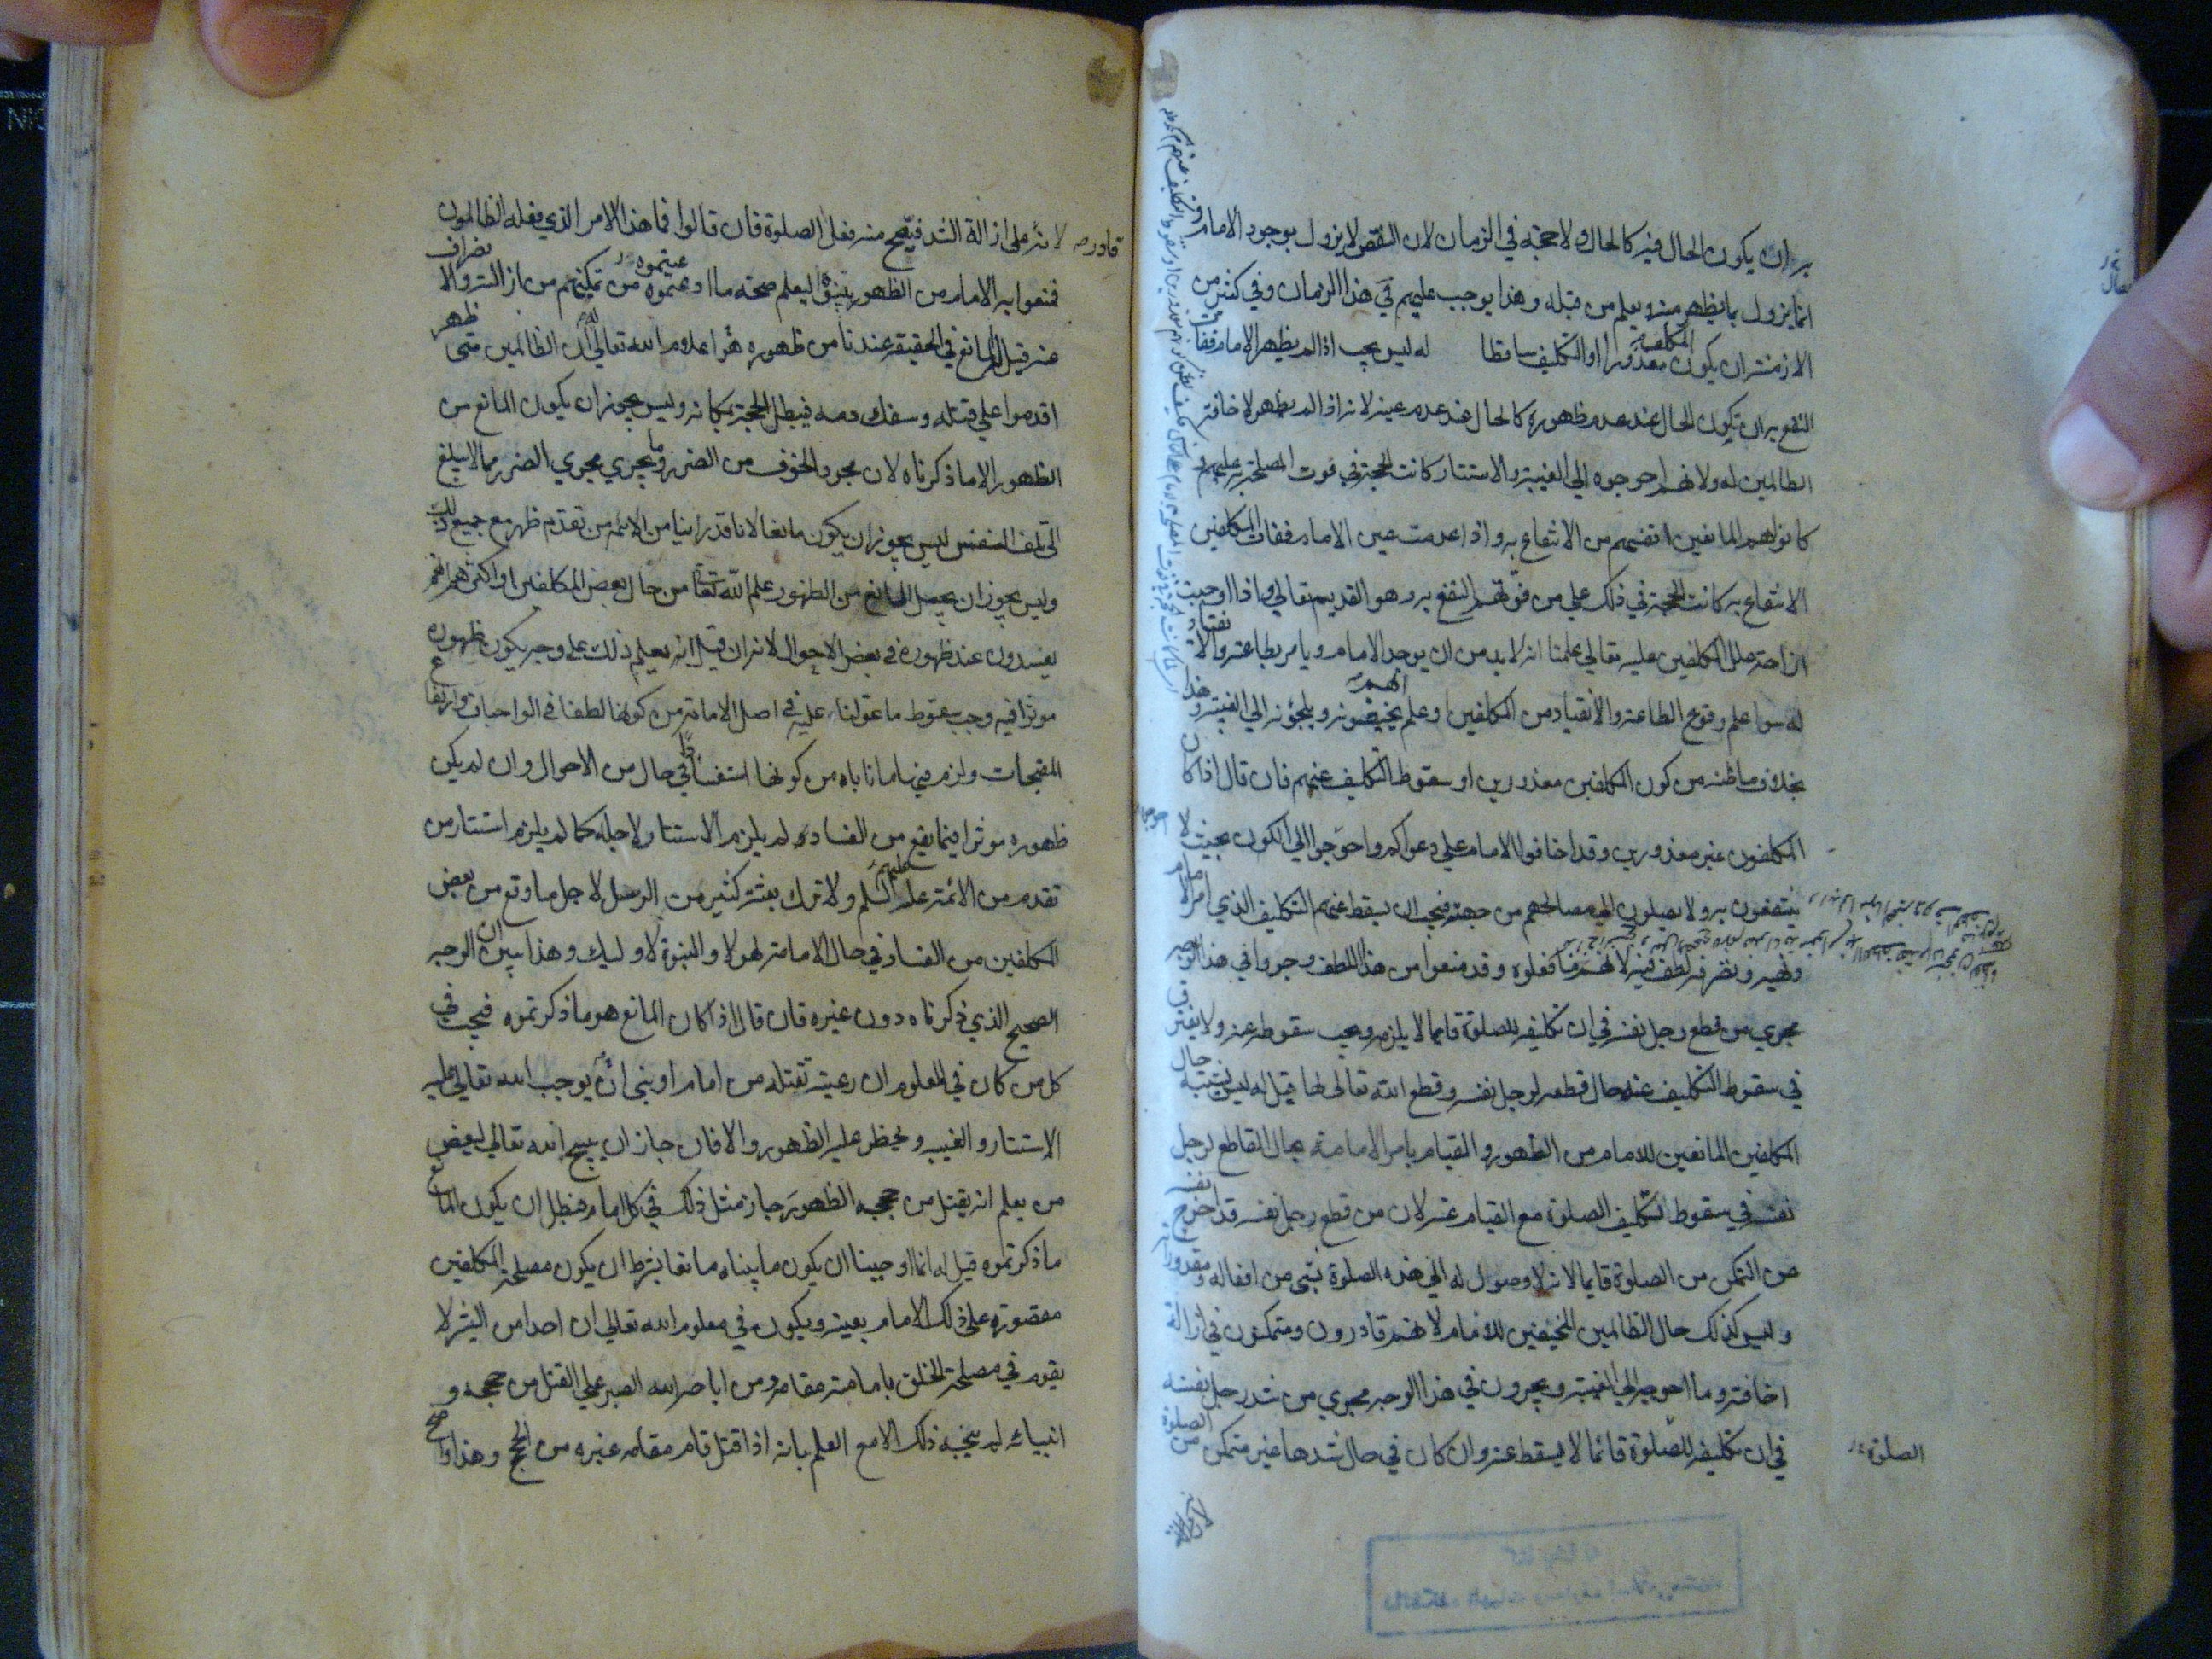 به ان يكون الحال فيه كالحال ولا حجة في الزمان لان النقص لا يزول بوجود الامام
انما يزول بما يظهر منه ويعلم من قبله وهذا يوجب عليهم في هذا الزمان وفي كثير من
الازمنة ان يكون المكلف معذورا او التكليف ساقطا له ليس يجب اذا لم يظهر الامام ففات
النفع به ان تكون الحال عند عدم ظهوره كالحال عند عدم عينه لانه اذا لم يظهر لاخافة
الظالمين له ولانهم احوجوه الي الغيبة والاستتار كانت الحجة في فوت المصلحة به عليهم و
كانوا هم المانعين انفسهم من الانتفاع به واذا عدمت عين الامام ففات المكلفين
الانتفاع به كانت الحجة في ذلك علي من فوتهم النفع به وهو القديم تعالي واذا اوجبت
ازاحة علل المكلفين عليه تعالي علمنا انه لا بد من ان يوجد الامام ويامر بطاعته والانقياد
له سوا علم وقوع الطاعة والانقياد من المكلفين او علم انهم يخيفونه ويلجؤنه الي الغيبة وهذا
بخلاف ما ظنه من كون المكلفين معذورين او سقوط التكليف عنهم فان قال اذا كان
المكلفون غير معذورين وقد اخافوا الامام علي دعواكم واحوجوا الي الكون بحيث لا
ينتفعون به ولا يصلون الي مصالحهم من جهته فيجب ان يسقط عنهم التكليف الذي امر الامام
ونهيه وتصرفه لطف فيه لانهم ما فعلوه وقد منعوا من هذا اللطف وجروا في هذا الوجه
مجري من قطع رجل نفسه في ان تكليفه للصلوة قايما لا يلزم ويجب سقوطه عنه ولا يفترق
في سقوط التكليف عنه حال قطعه لرجل نفسه وقطع الله تعالى لها قيل له ليس يشبه حال
المكلفين المانعين للامام من الظهور والقيام بامر الامامة بحال القاطع لرجل
نفسه في سقوط تكليف الصلوة مع القيام عنه لان من قطع رجل نفسه قد اخرج نفسه
من التمكن من الصلوة قايما لانه لا وصول له الي هذه الصلوة بشي من افعاله ومقدوراته
وليس كذلك حال الظالمين المخيفين للامام لانهم قادرون ومتمكنون في ازالة
اخافته وما احوجه الي الغيبة ويجرون في هذا الوجه مجري من شد رجل نفسه
في ان تكليفه للصلوة قائما لا يسقط عنه وان كان في حال شدها غير متمكن من الصلوة
الصلوة
قادر
لانه علي ازالة الشد فيصح منه فعل الصلوة فان قالوا فما هذا الامر الذي فعله الظالمون
فمنعوا به الامام من الظهور بينوه ليعلم صحة ما ادعيتموه من تمكنهم من ازالته والانصراف
عنه قيل المانع في الحقيقة عندنا من ظهوره هو اعلام الله تعالي له ان الظالمين متى ظهر
اقدموا علي قتله وسفك دمه فيبطل الحجة بمكانه وليس يجوز ان يكون المانع من
الظهور الا ما ذكرناه لان مجرد الخوف من الضرر وما يجري مجري الضرر مما لا يبلغ
الي تلف النفس ليس يجوز ان يكون مانعا لانا قد راينا من الائمة من تقدم ظهر مع جميع ذلك
وليس يجوز ان يجعل المانع من الظهور علم الله تعالي من حال بعض المكلفين او اكثرهم انهم
يفسدون عند ظهوره في بعض الاحوال لانه ان قيل انه يعلم ذلك علي وجه يكون ظهوره
موثرا فيه وجب سقوط ما عولنا عليه في اصل الامامة من كونها لطفا في الواجبات وارتفاع
المقبحات ولزم فيها ما اباه من كونها استفسادا في حال من الاحوال وان لم يكن
ظهوره موثرا فيما يقع من الفساد لم يلزم الاستتار لاجله كما لم يلزم استتار من
تقدم من الائمة عليهم السلم ولا ترك بعثة كثير من الرسل لاجل ما وقع من بعض
المكلفين من الفساد في حال الامامة لهولاء والنبوة لاوليك وهذا يبين ان الوجه
الصحيح الذي ذكرناه دون غيره فان قال اذا كان المانع هو ما ذكرتموه فيجب في
كل من كان في المعلوم ان رعيته تقتله من امام او نبي ان يوجب الله تعالي عليه
الاستتار والغيبه ويحظر عليه الظهور والا فان جاز ان يبيح الله تعالي لبعض
من يعلم انه يقتل من حججه الظهور جاز مثل ذلك في كل امام فبطل ان يكون المانع
ما ذكرتموه قيل له انما اوجبنا ان يكون ما بيناه مانعا بشرط ان يكون مصلحة المكلفين
مقصورة علي ذلك الامام بعينه ويكون في معلوم الله تعالي ان احدا من البشر لا
يقوم في مصلحة الخلق بامامته مقامه ومن اباحه الله الصبر علي القتل من حججه و
انبيائه لم يبحه ذلك الا مع العلم بانه اذا قتل قام مقامه غيره من الحجج وهذا واضح